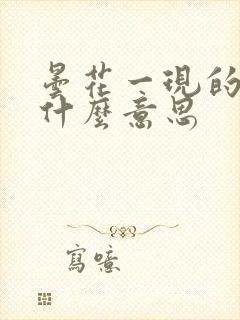 曇花一現的
什麼意思
寫噫